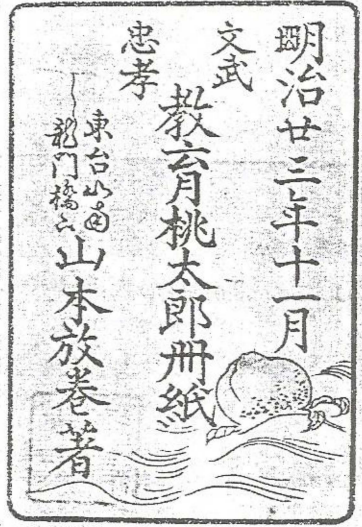 明治廿三年十一月
文武
忠孝
教育桃太郎冊紙
東台
龍門橋
山本放巻著